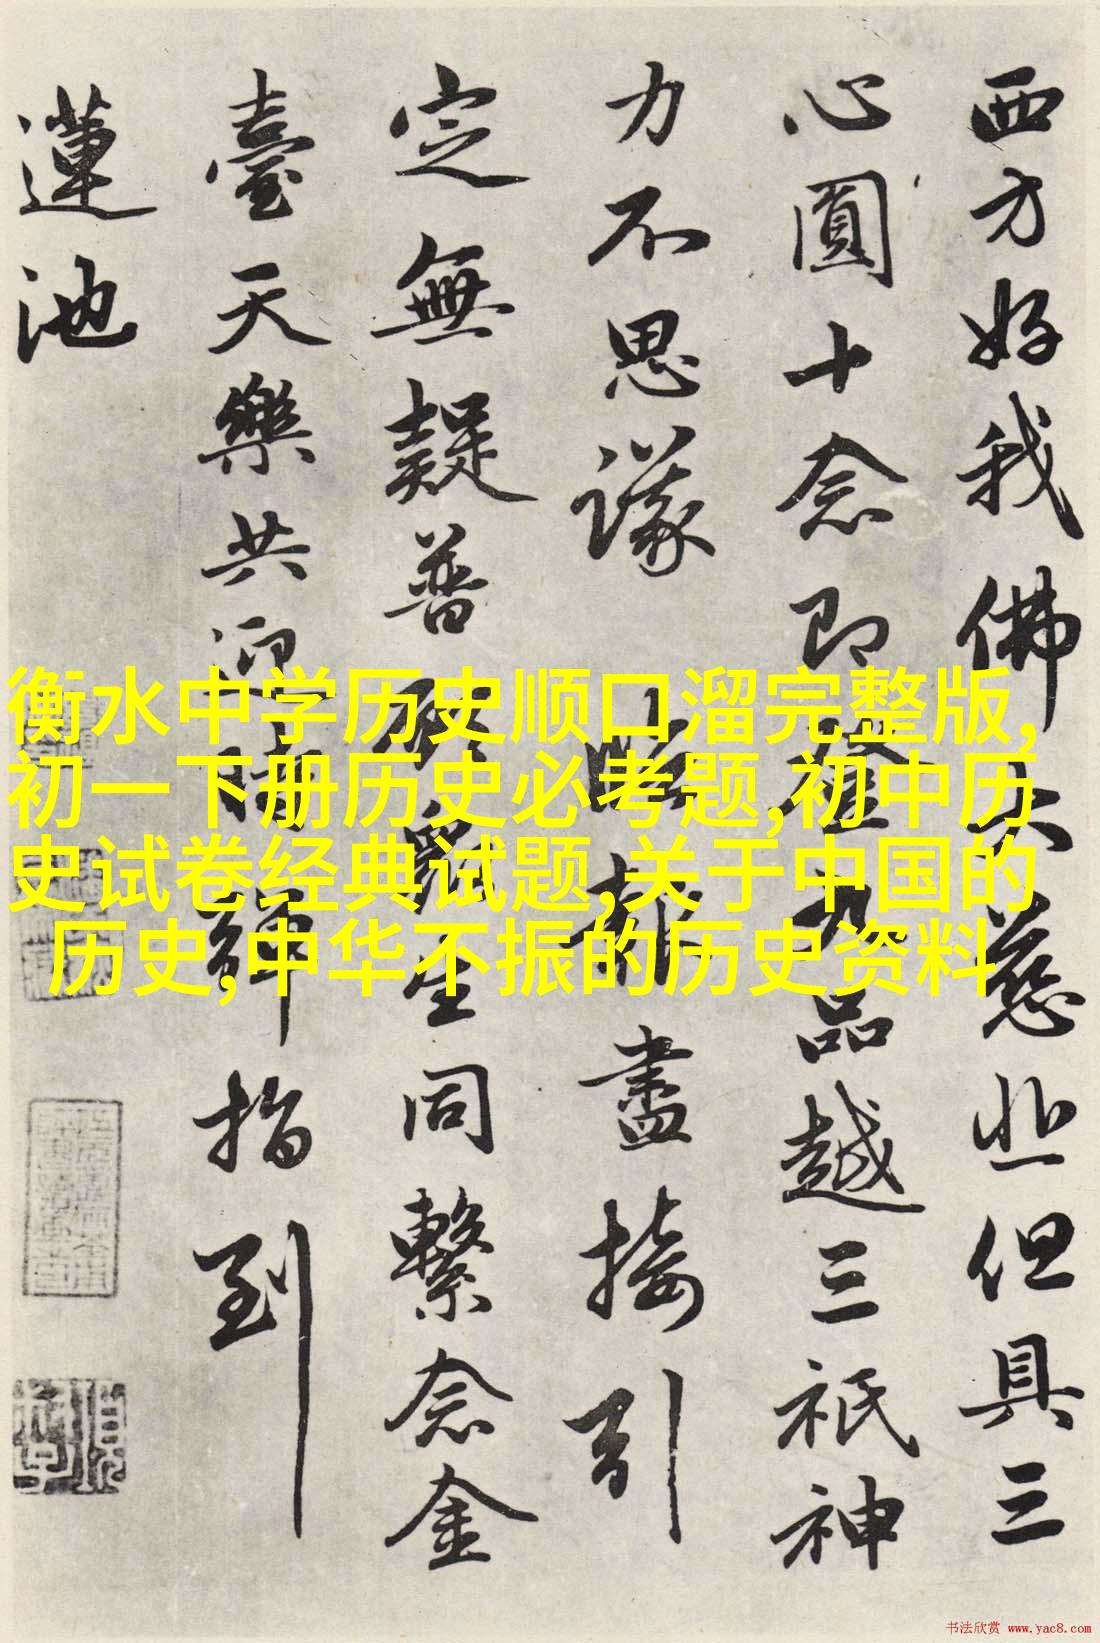 西方好我佛大慈悲但具三
心圓十念即登九品越三祇神
力不思議臨報盡接引
定無疑普勸眾生同繫念金
臺天樂共迎時彈指到
蓮池
衡水中学历史顺口溜完整版,
初一下册历史必考题,初中历
史试卷经典试题,关于中国的
历史,中华不振的历史资料
书法欣赏 www.yac8.com